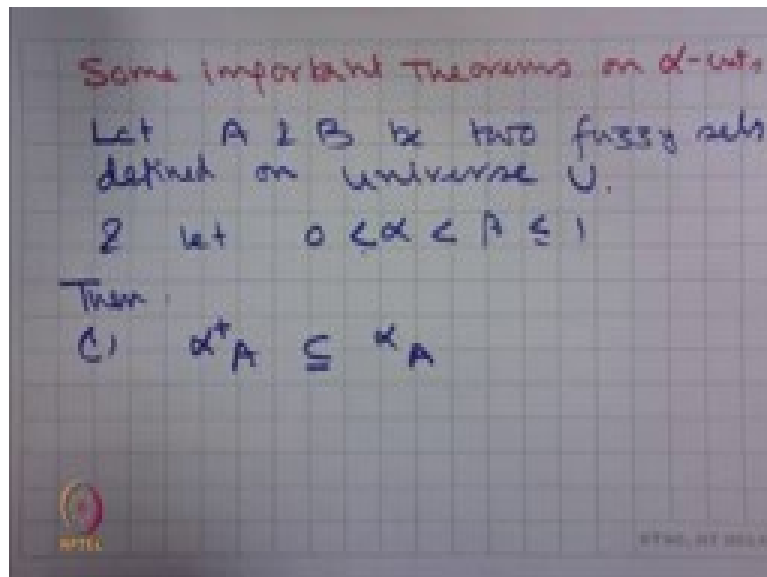 Some important Theorems on α-cuts
Let A & B be two fuzzy sets
defined on universe U.
& let 0 < α < β ≤ 1
Then.
(1) α⁺A ⊆ ᵅA
NPTEL